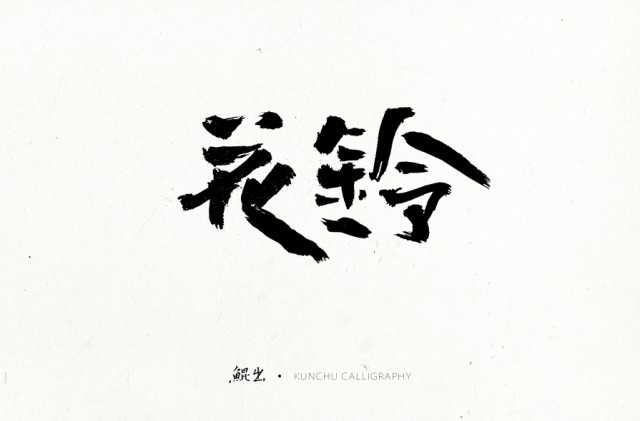 花鈴
鲲出 • KUNCHU CALLIGRAPHY